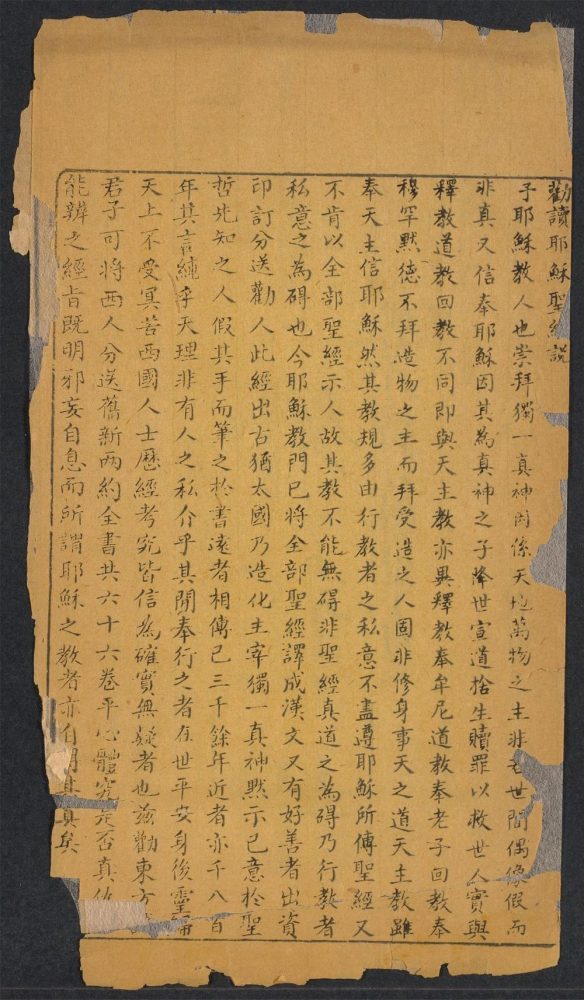 勸讀耶穌聖經說
子耶穌教人也崇拜獨一真神因係天地萬物之主非世間偶像假而
非真又信奉耶穌因其為真神之子降世宣道捨生贖罪以救世人實與
釋教道教回教不同即與天主教亦異釋教奉牟尼道教奉老子回教奉
穆罕默德不拜造物之主而拜受造之人固非修身事天之道天主教雖
奉天主信耶穌然其教規多由行教者之私意不盡遵耶穌所傳聖經又
不肯以全部聖經示人故其教不能無碍非聖經真道之為碍乃行教者
私意之為碍也今耶穌教門已將全部聖經譯成漢文又有好善者出資
印訂分送勸人此經出古猶太國乃造化主宰獨一真神默示己意於聖
哲先知之人假其手而筆之於書遠者相傳已三千餘年近者亦千八百
年其言純乎天理非有人之私介乎其間奉行之者在世平安身後靈
天上不受冥苦西國人士歷經考究皆信為確實無疑者也茲勸東方
君子可將西人分送舊新兩約全書共六十六卷平心體究是否真
能辨之經旨既明邪妄自息而所謂耶穌之教者亦自明其真矣